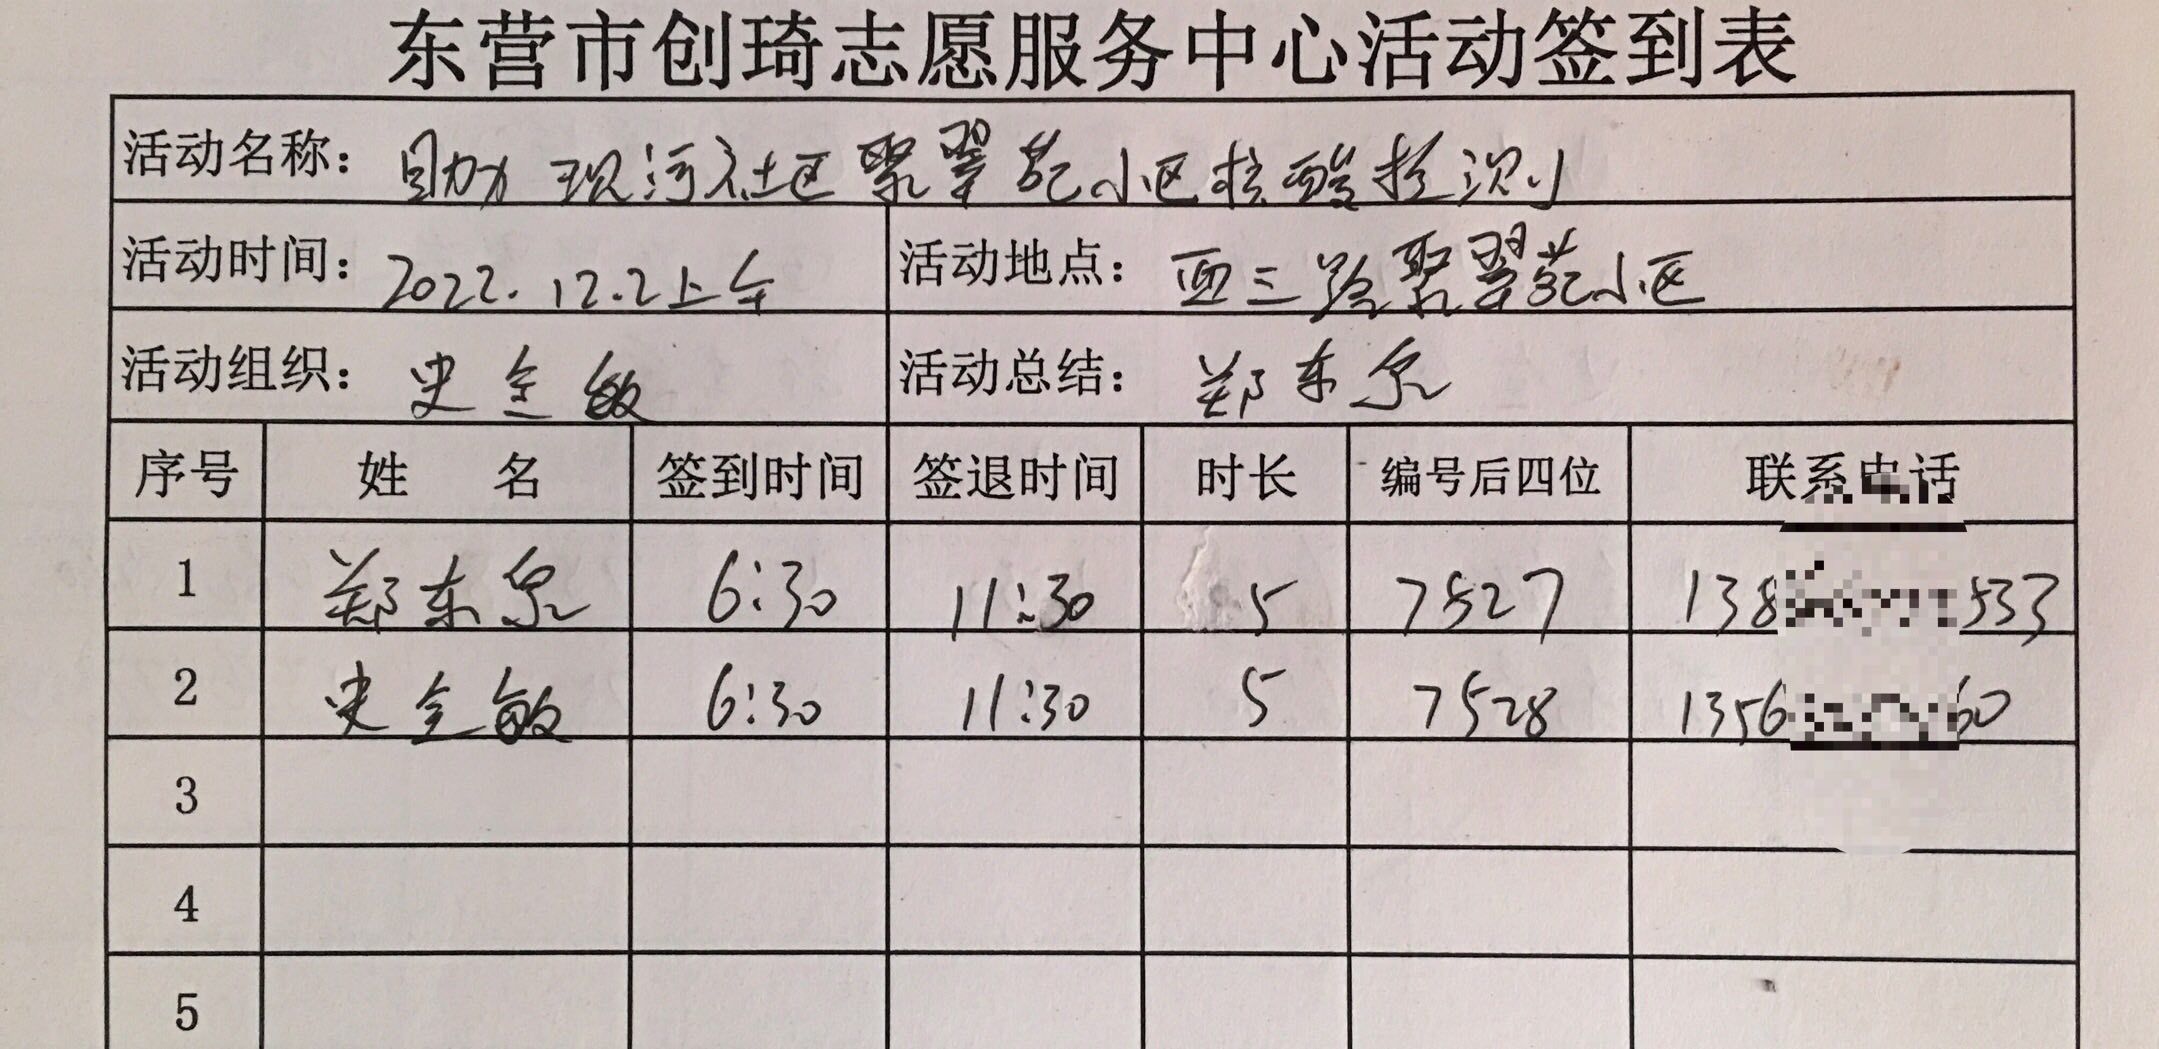 东营市创琦志愿服务中心活动签到表
活动名称：助力现河社区聚翠苑小区核酸检测
活动时间：2022.12.2上午 活动地点：西三路聚翠苑小区
活动组织：史全敏 活动总结：郑东泉
序号 姓名 签到时间 签退时间 时长 编号后四位 联系电话
1 郑东泉 6:30 11:30 5 7527 138 533
2 史全敏 6:30 11:30 5 7528 1356 60
3
4
5